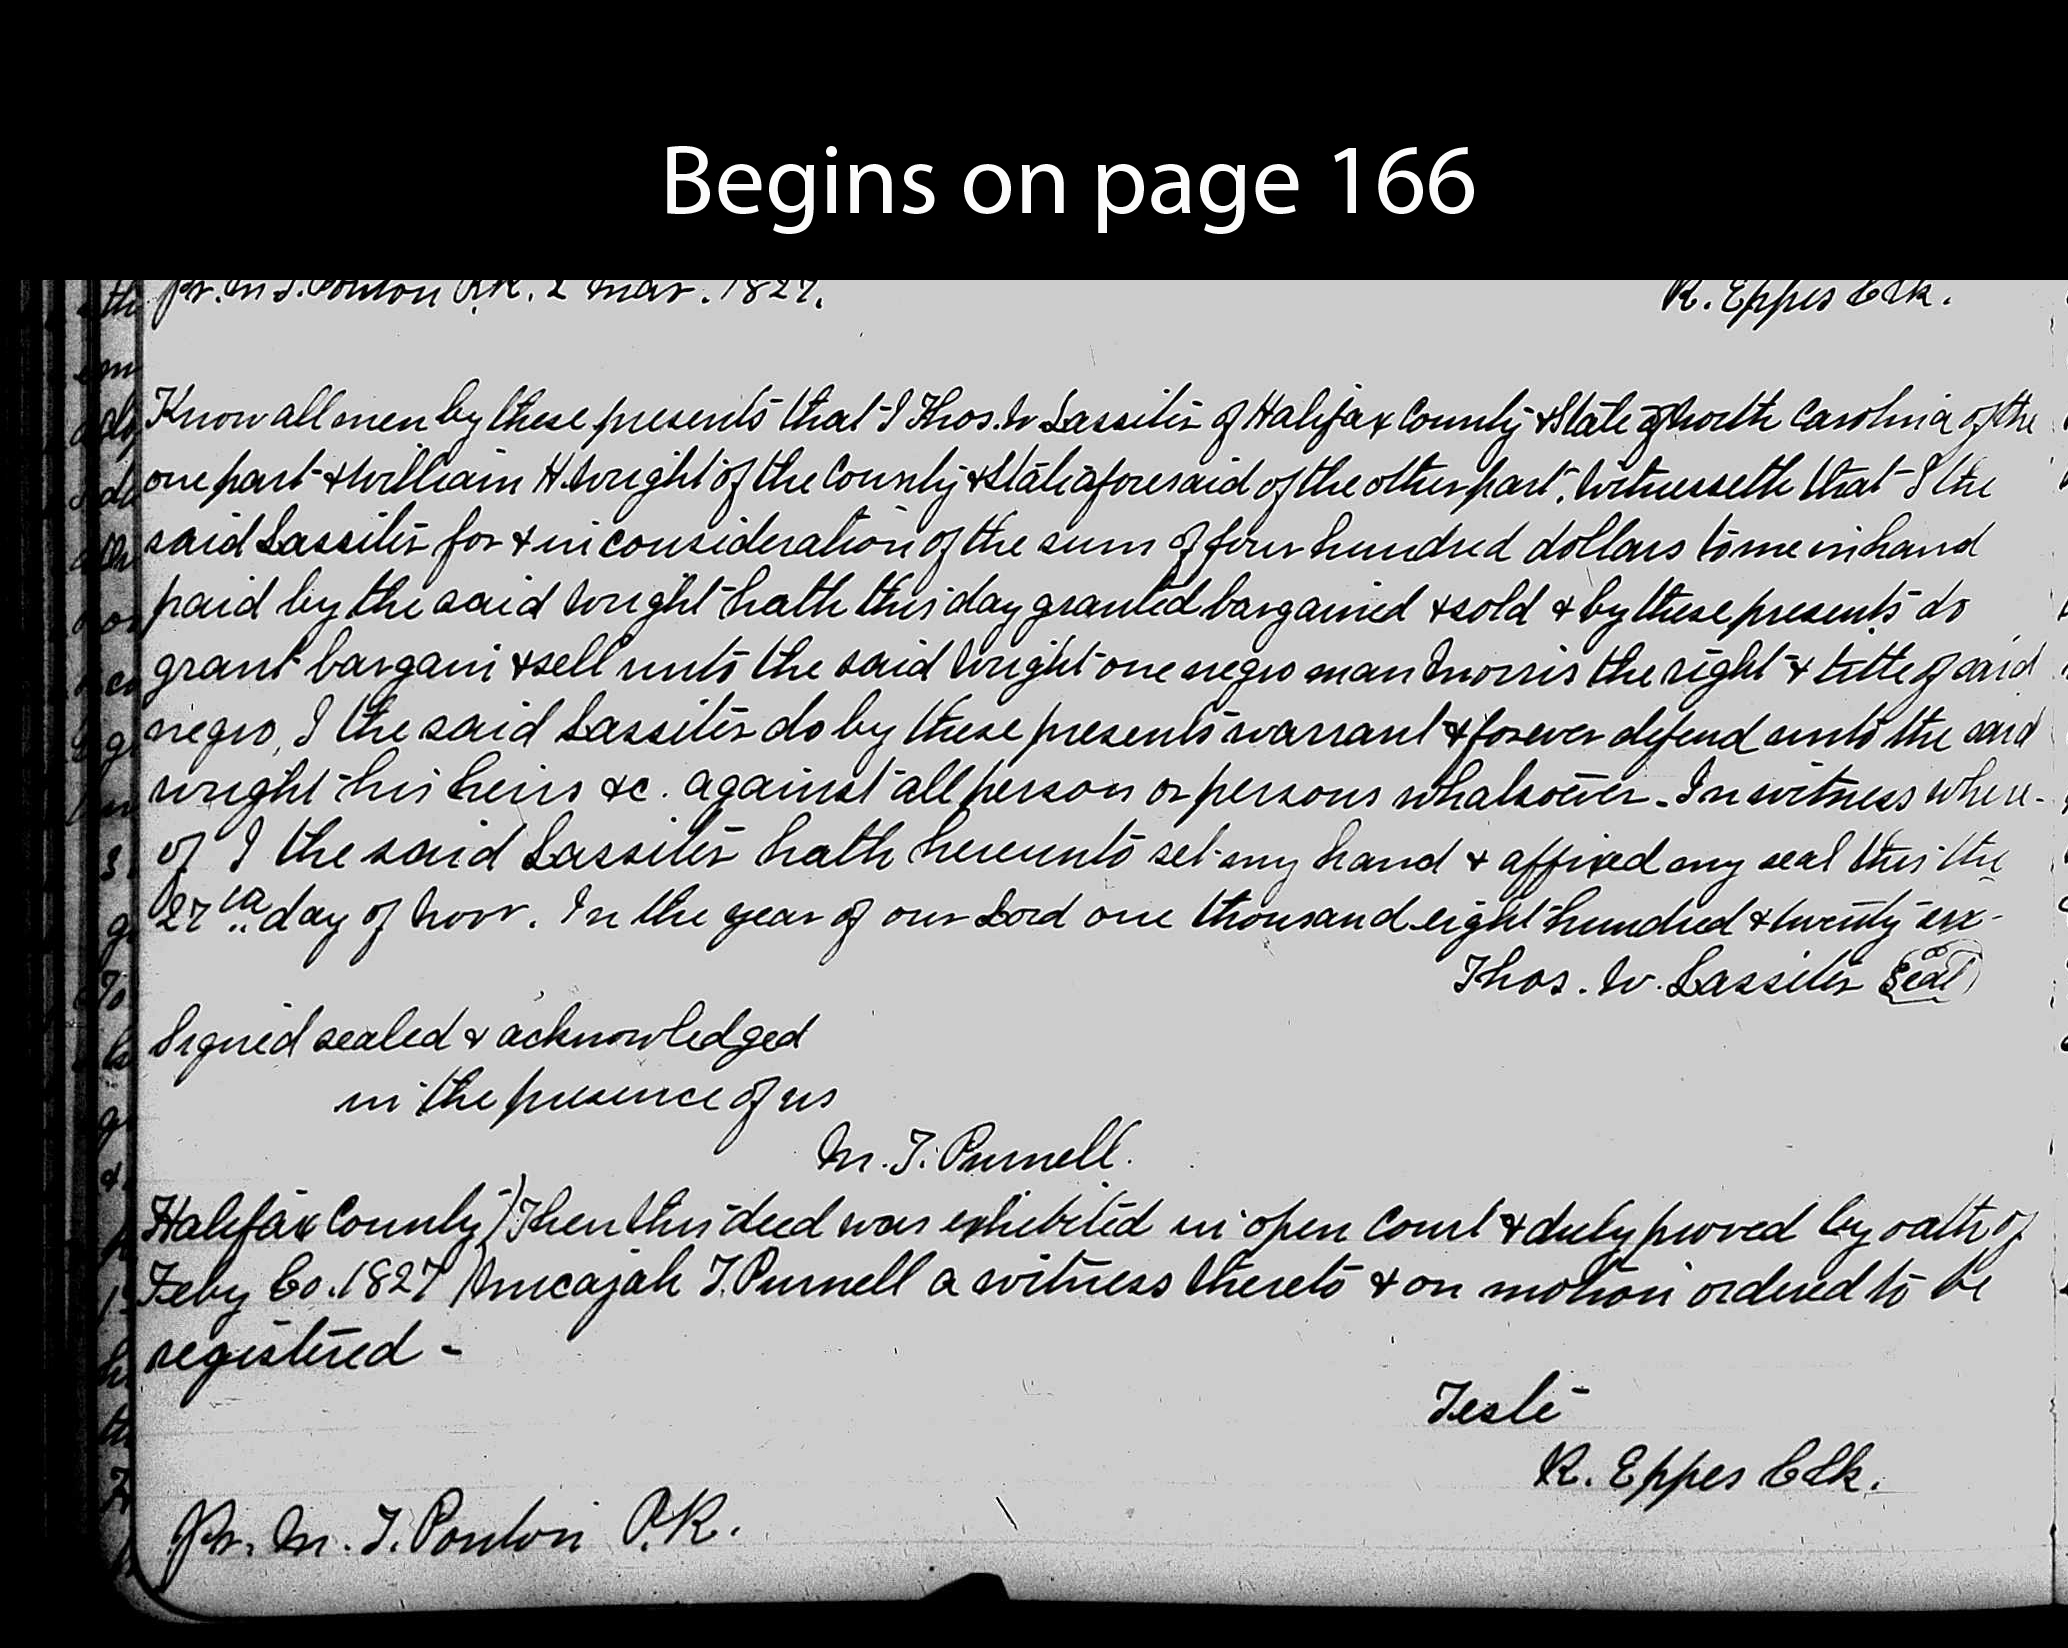 Begins on page 166
Pr. M. T. Ponton P.R. 2 Mar. 1827.
R. Eppes Clk.
Know all men by these presents that I Thos. W Lassiter of Halifax County & State of North Carolina of the
one part & William H. Wright of the County & State aforesaid of the other part, Witnesseth that I the
said Lassiter for & in consideration of the sum of four hundred dollars to me in hand
paid by the said Wright hath this day granted bargained & sold & by these presents do
grant bargain & sell unto the said Wright one negro man Morris the right & title of said
negro, I the said Lassiter do by these presents warrant & forever defend unto the said
Wright his heirs &c. against all person or persons whatsoever - In witness where-
of I the said Lassiter hath hereunto set my hand & affixed my seal this the
27th day of Novr. In the year of our Lord one thousand eight hundred & twenty six -
Thos. W. Lassiter Seal
Signed sealed & acknowledged
in the presence of us
M. T. Purnell.
Halifax County ) Then this deed was exhibited in open Court & duly proved by oath of
Feby Co. 1827 ) Micajah T. Purnell a witness thereto & on motion ordered to be
registered -
Teste
R. Eppes Clk.
Pr. M. T. Ponton P.R.